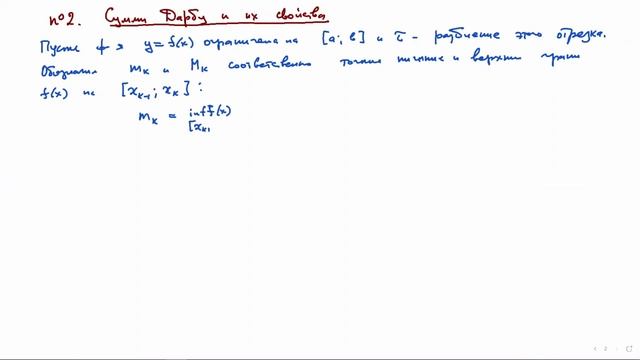 п°2. Суммы Дарбу и их свойства
Пусть ф-я y=f(x) ограничена на [a; b] и τ - разбиение этого отрезка.
Обозначим m_k и M_k соответственно точные нижние и верхние грани
f(x) на [x_{k-1}; x_k] :
m_k = inf f(x)
[x_{k-1}
2